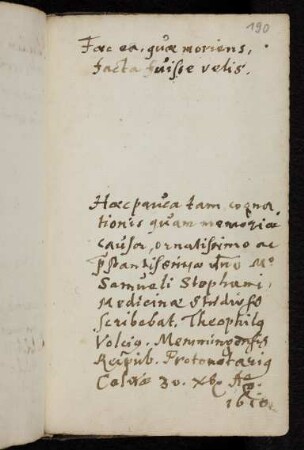 190
Fac ea, quæ moriens,
facta fuisse velis.
Hæc pauca tam cogna
tionis quam memoriæ
causa, ornatissimo ac
præstantissimo dño M.
Samueli Stephani,
Medicinæ studioso
scribebat. Theophilꝯ
Volciꝯ. Memmingensis
Reipub. Protonotariꝯ
30. Xb.
1610